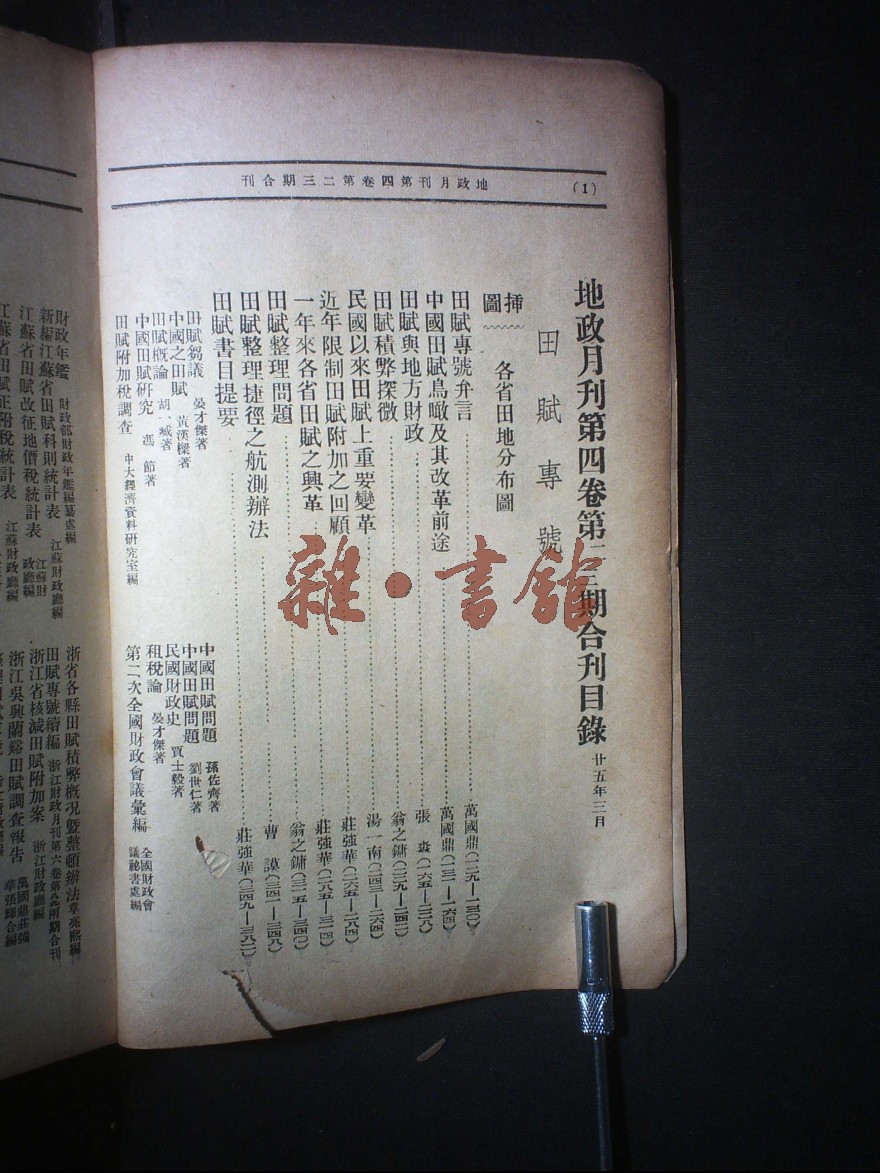 (1)
地政月刊第四卷第二三期合刊
地政月刊第四卷第二三期合刊目錄 廿五年三月
田賦專號
插圖 各省田地分布圖
田賦專號弁言 萬國鼎(一二九—一三〇)
中國田賦鳥瞰及其改革前途 萬國鼎(一三一—一六四)
田賦與地方財政 張淼(一六五—二三八)
田賦積弊探微 翁之鏞(二三九—二四二)
民國以來田賦上重要變革 湯一南(二四三—二六四)
近年限制田賦附加之回顧 莊強華(二六五—二八四)
一年來各省田賦之興革 莊強華(二八五—三一四)
田賦整理問題 翁之鏞(三一五—三四〇)
田賦整理捷徑之航測辦法 曹謨(三四一—三四八)
田賦書目提要 莊強華(三四九—三八二)
田賦芻議 晏才傑著
中國田賦問題 孫佐齊著
中國之田賦 黃漢樑著
中國田賦問題 劉世仁著
田賦概論 胡一臧著
民國財政史 賈士毅著
中國田賦研究 馮節著
租稅論 晏才傑著
田賦附加稅調查 中大經濟資料研究室編
第二次全國財政會議彙編 全國財政會議祕書處編
財政年鑑 財政部財政年鑑編纂處編
浙省各縣田賦積弊概況暨整頓辦法 章亮熙編
新編江蘇省田賦科則統計表 江蘇財政廳編
田賦專號續編 浙江財政月刊第六卷第八九兩期合刊
江蘇省田賦改征地價稅統計表 江蘇財政廳編
浙江省核減田賦附加案 浙江財政廳編
江蘇省田賦正附稅統計表 江蘇財政廳編
浙江吳興蘭谿田賦調查報告 萬國鼎莊強華張輝合編
雜·書館